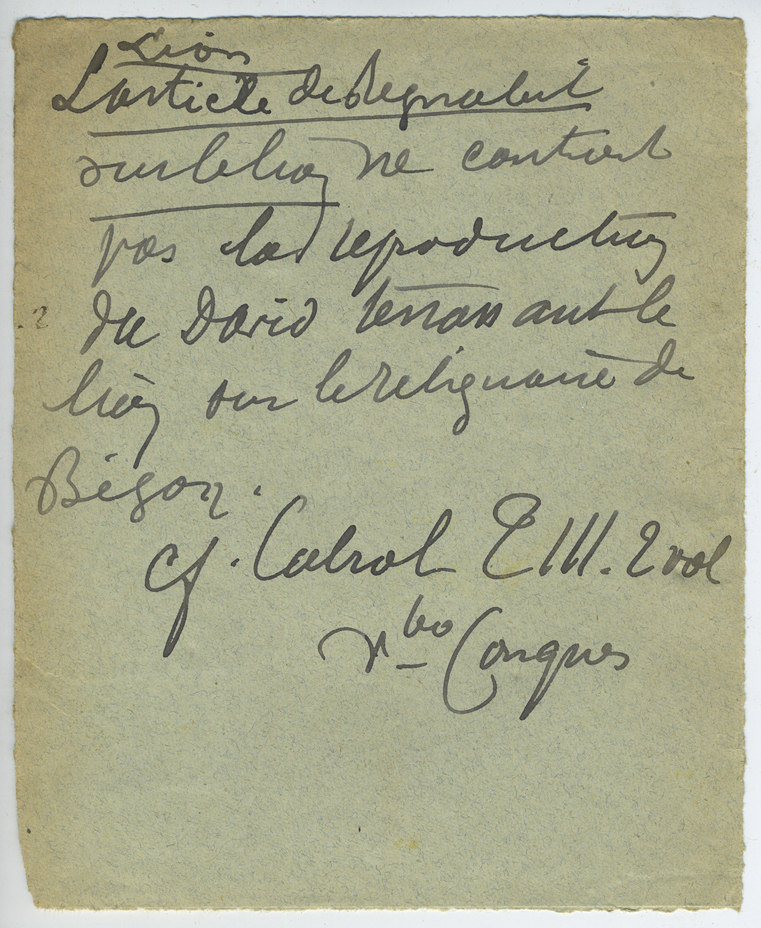 Lion
L'article de Regnault
sur le lion ne contient
pas la reproduction
du David terrassant le
lion sur le reliquaire de
Bégon.
cf. Cabrol T III. 2 vol
Vbo Conques